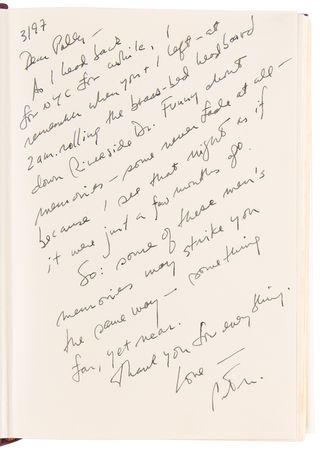 3/97
Dear Pabby —
As I head back
for NYC for awhile, I
remember when you + I left — at
2 am. rolling the brass-bed headboard
down Riverside Dr. Funny about
memories — some never fade at all —
because I see that night as if
it were just a few months ago.
So: some of these men's
memories may strike you
the same way — something
far, yet near.
Thank you for everything.
Love —